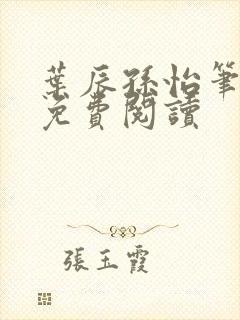 葉辰孫怡筆
免費閱讀
張玉霞